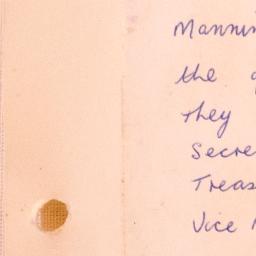 Mannin
the
They
Secre
Treas
Vice